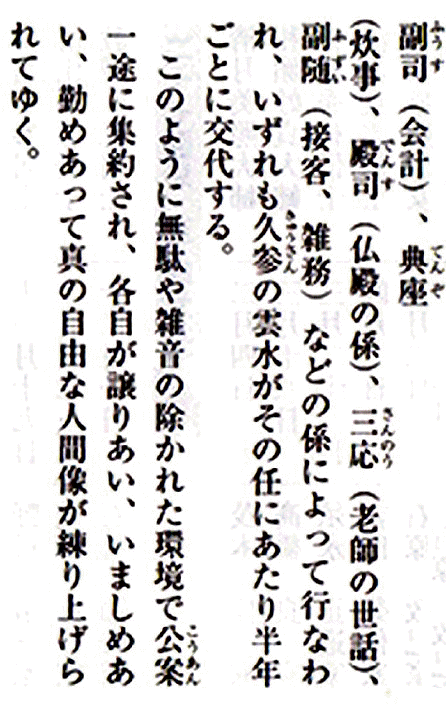 副司（会計）、典座
（炊事）、殿司（仏殿の係）、三応（老師の世話）、
副随（接客、雑務）などの係によって行なわ
れ、いずれも久参の雲水がその任にあたり半年
ごとに交代する。
このように無駄や雑音の除かれた環境で公案
一途に集約され、各自が譲りあい、いましめあ
い、勤めあって真の自由な人間像が練り上げら
れてゆく。